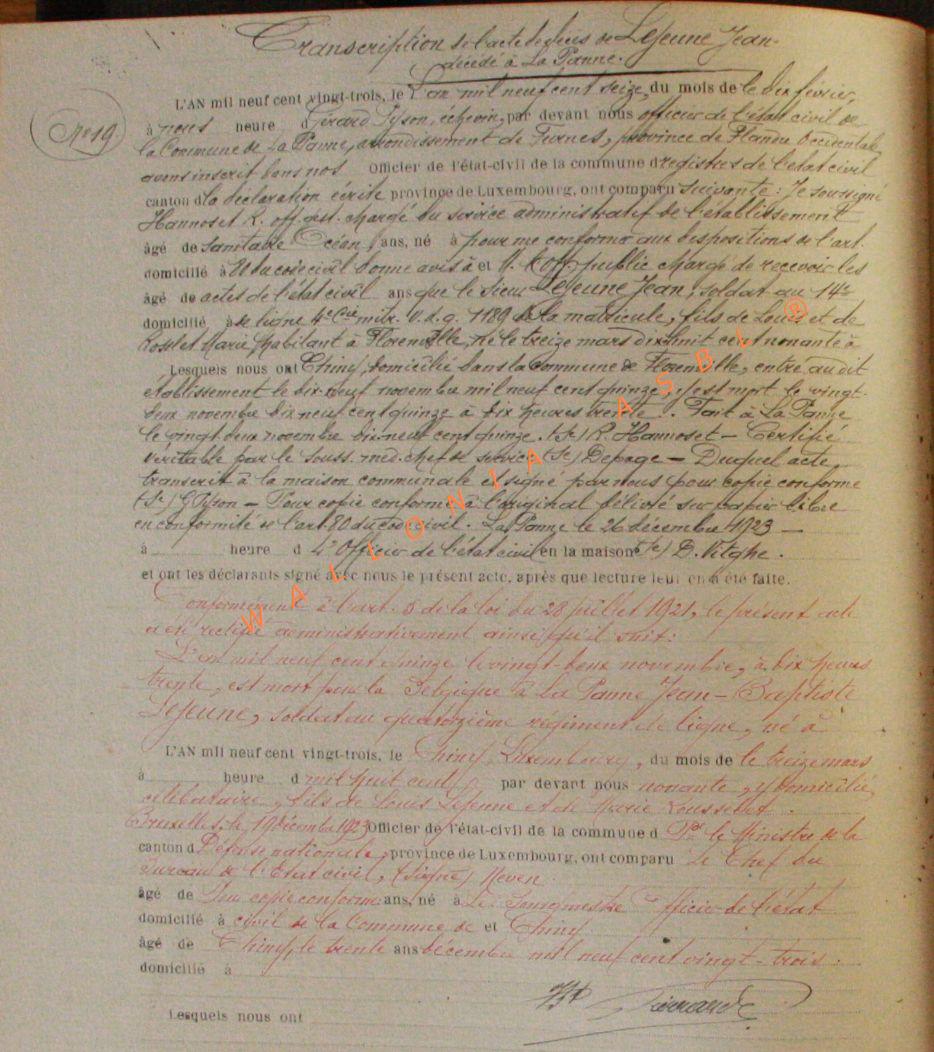 Transcription de l'acte de décès de Lejeune Jean
décédé à La Panne.
N° 19
L'AN mil neuf cent vingt-trois, le L'an mil neuf cent seize, du mois de le dix février,
à nous heure d Gérard Pyson, échevin, par devant nous officier de l'état civil de
la Commune de La Panne, arrondissement de Furnes, province de Flandre Occidentale
avons inscrit dans nos Officier de l'état-civil de la commune d registres de l'état civil
canton d la déclaration écrite province de Luxembourg, ont comparu suivante : Je soussigné
Hannoset R. off. gest. chargé du service administratif de l'établissement
âgé de sanitaire Océan, ans, né à pour me conformer aux dispositions de l'art.
domicilié à 80 du code civil donne avis à et M. l'off. public chargé de recevoir les
âgé de actes de l'état civil ans que le sieur Lejeune Jean, soldat au 14e
domicilié à de ligne 4e Cie mitr. V.d.g. 1189 de la matricule, fils de Louis et de
Marie, habitant à Florenville, né le treize mars dix huit cent nonante à
Lesquels nous ont Chiny, domicilié dans la commune de Florenville, entré au dit
établissement le dix-neuf novembre mil neuf cent quinze, y est mort le vingt-
deux novembre dix neuf cent quinze à dix heures trente. Fait à La Panne
le vingt deux novembre dix-neuf cent quinze. (Sé) R. Hannoset – Certifié
véritable par le souss. méd. chef de service (Sé) Depage – Duquel acte
transcrit à la maison communale et signé par nous pour copie conforme
(Sé) G. Pyson – Pour copie conforme à l'original délivré sur papier libre
en conformité de l'art. 80 du code civil. La Panne le 26 décembre 1923 –
à heure d L'Officier de l'état civil en la maison (sé) D.
et ont les déclarants signé avec nous le présent acte, après que lecture leur en a été faite.
Conformément à l'art. 8 de la loi du 28 juillet 1921, le présent acte
a été rectifié administrativement ainsi qu'il suit :
L'an mil neuf cent quinze le vingt-deux novembre, à dix heures
trente, est mort pour la Belgique à La Panne Jean-Baptiste
Lejeune, soldat au quatorzième régiment de ligne, né à
L'AN mil neuf cent vingt-trois, le Chiny, Luxembourg, du mois de le treize mars
à heure d mil huit cent par devant nous nonante, y domicilié,
célibataire, fils de Louis Lejeune et de Marie
Bruxelles, le 19 décembre 1923 Officier de l'état-civil de la commune d Pr le Ministre de la
canton d Défense nationale, province de Luxembourg, ont comparu Le Chef du
Bureau de l'Etat civil, (signé) Neven
âgé de Pour copie conforme ans, né à Le Bourgmestre Officier de l'état
domicilié à civil de la Commune de et Chiny
âgé de Chiny, le trente ans décembre mil neuf cent vingt-trois.
domicilié à
Lesquels nous ont
WALLONIA ASBL ®